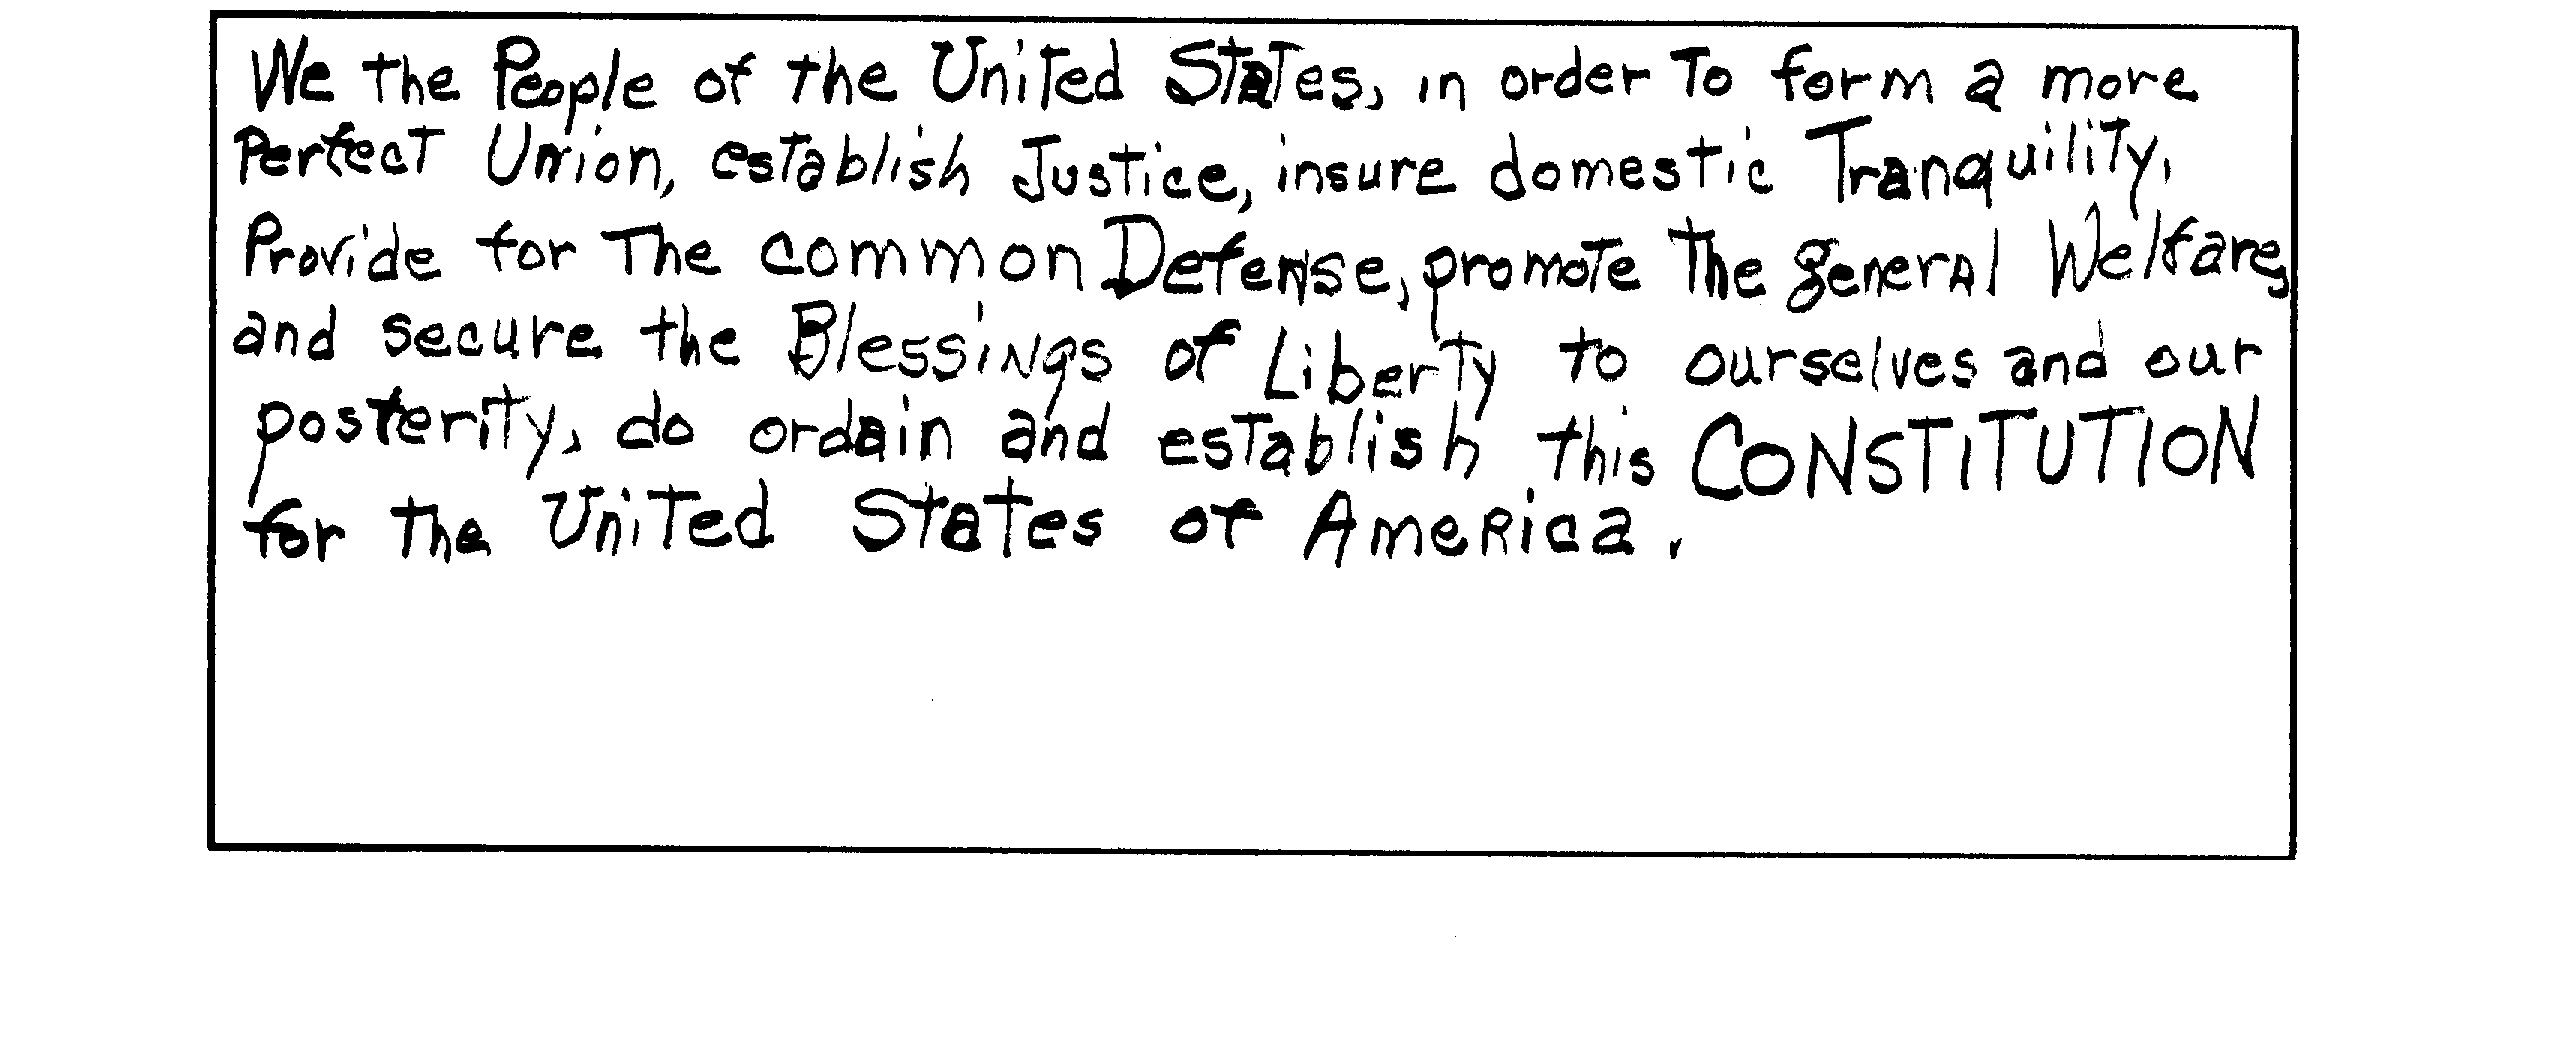 We the People of the United States, in order To form a more
Perfect Union, establish Justice, insure domestic Tranquility,
Provide for The common Defense, promote The general Welfare,
and secure the Blessings of Liberty to ourselves and our
posterity, do ordain and establish this CONSTITUTION
for the United States of America.